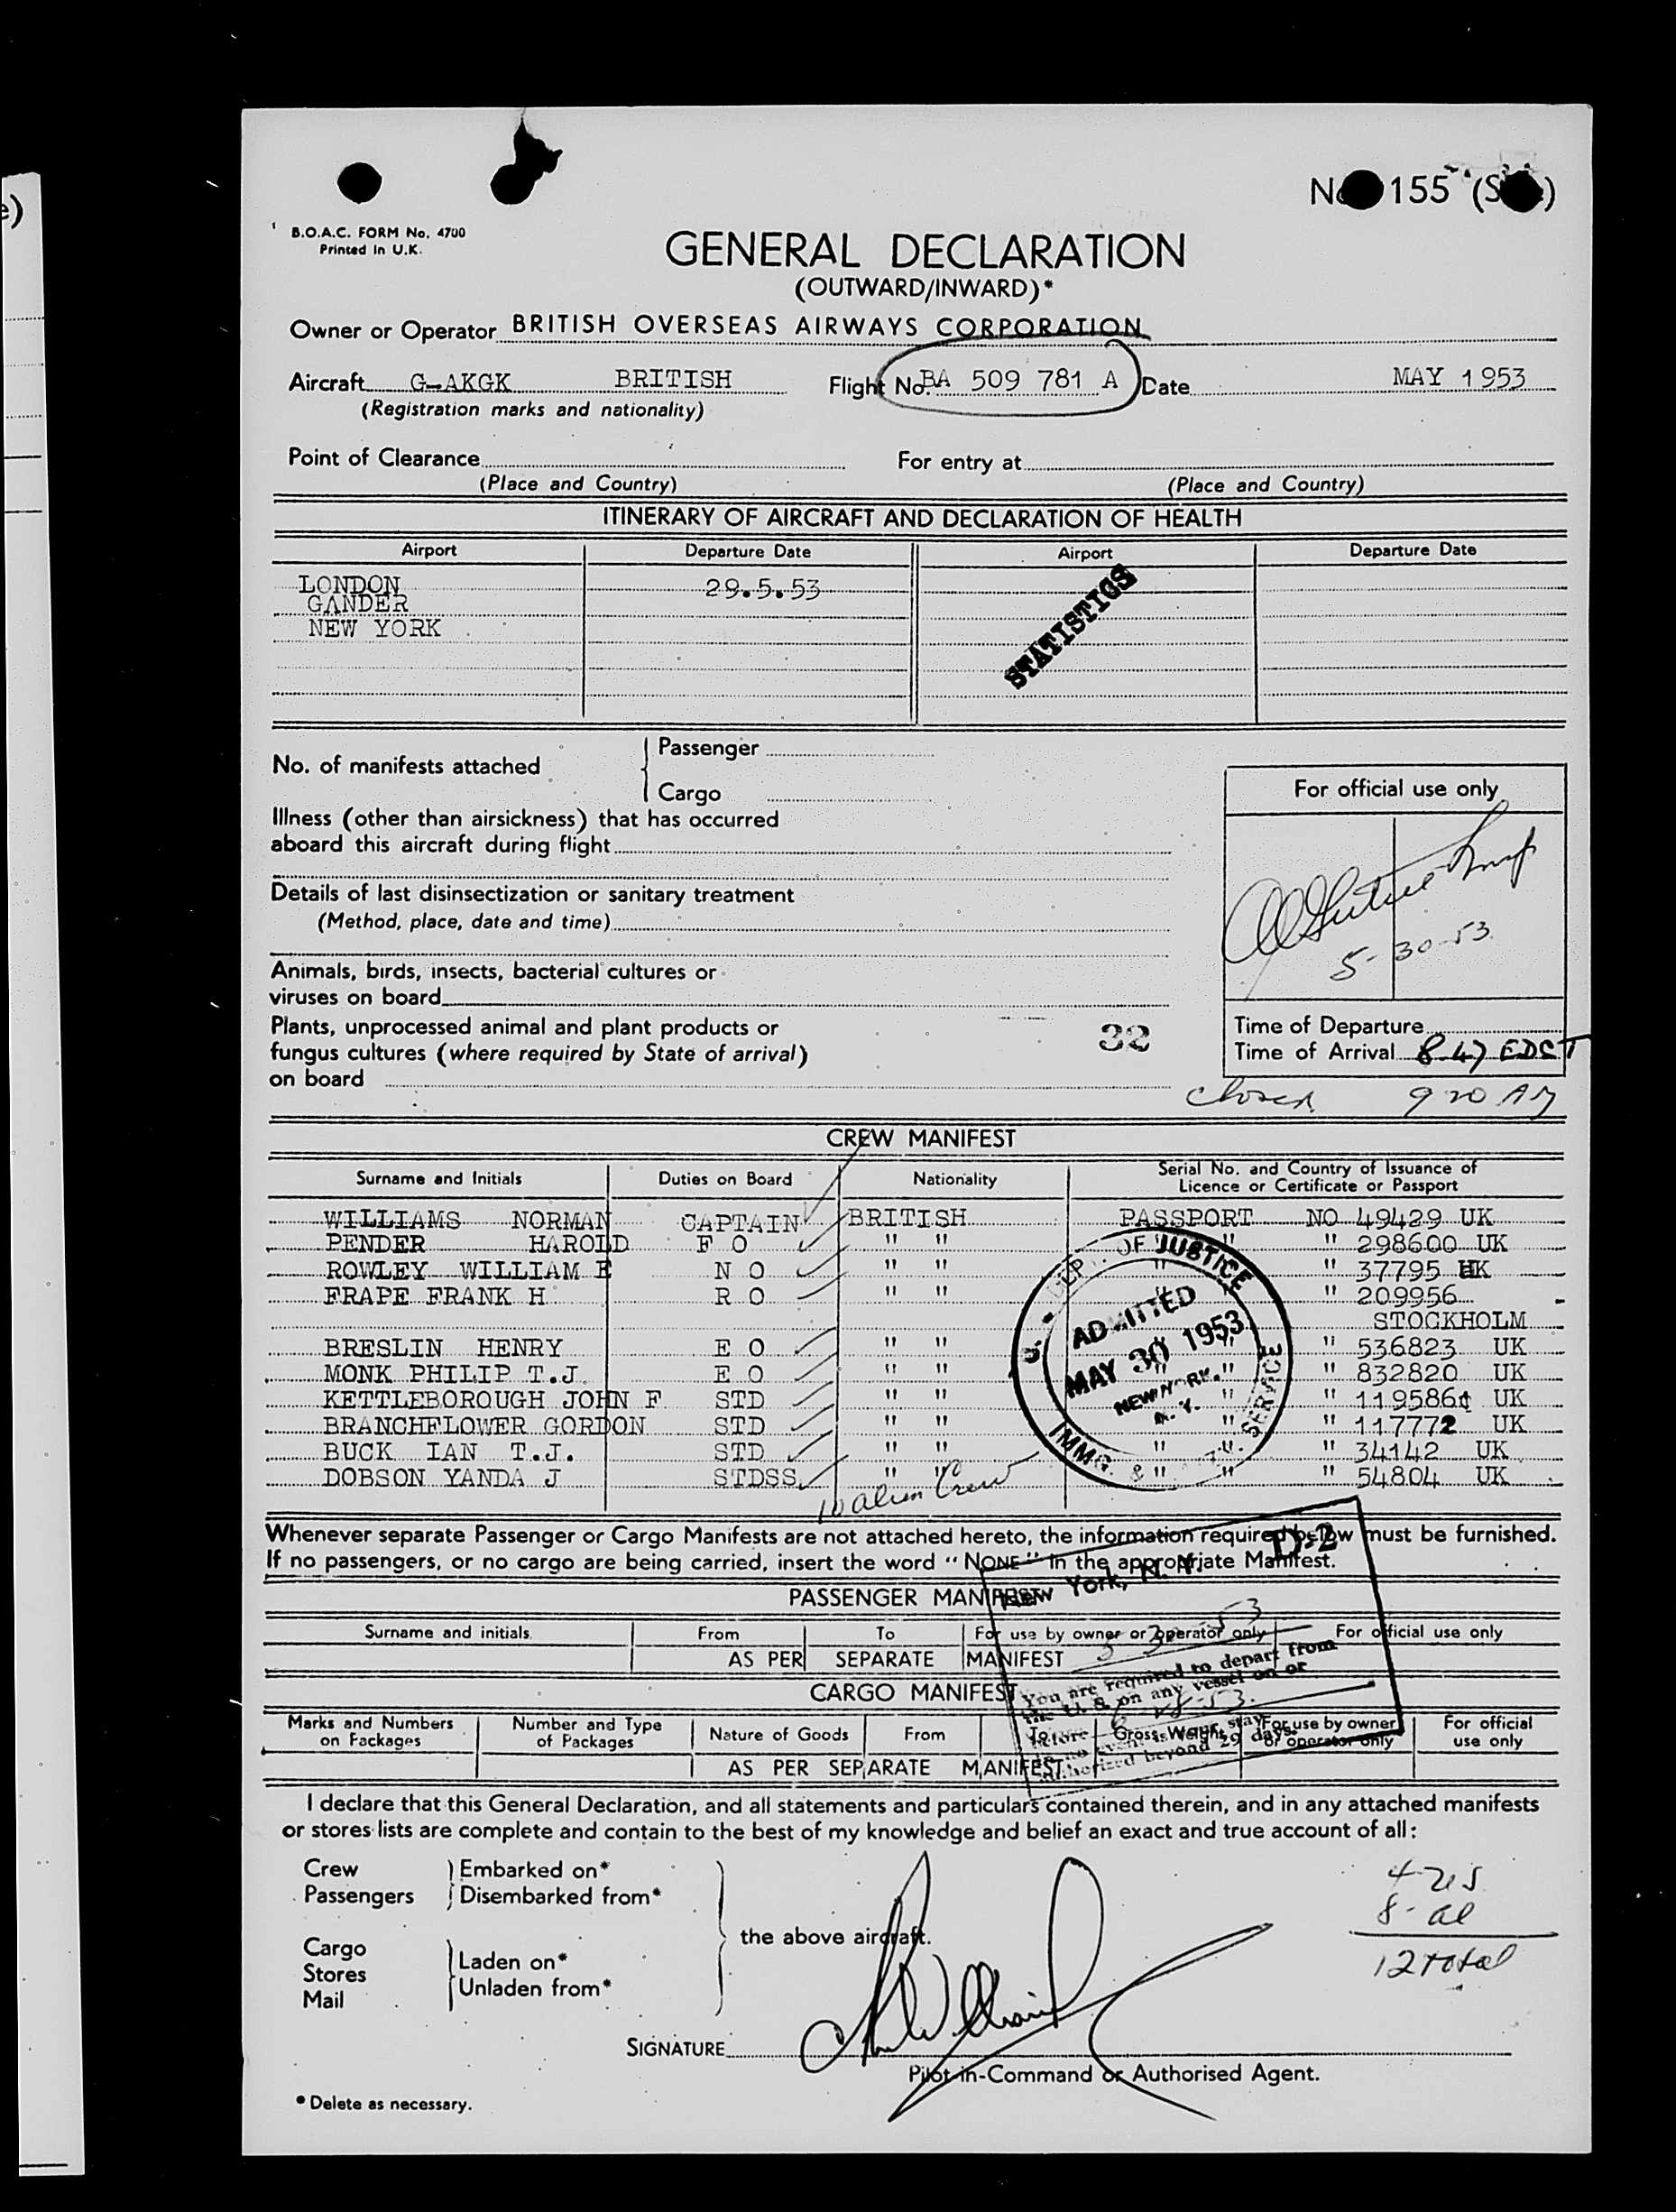 e)
No 155 (S
B.O.A.C. FORM No. 4700
Printed in U.K.
GENERAL DECLARATION
(OUTWARD/INWARD)*
Owner or Operator BRITISH OVERSEAS AIRWAYS CORPORATION
Aircraft G-AKGK BRITISH Flight No. BA 509 781 A Date MAY 1953
(Registration marks and nationality)
Point of Clearance For entry at
(Place and Country) (Place and Country)
ITINERARY OF AIRCRAFT AND DECLARATION OF HEALTH
Airport Departure Date Airport Departure Date
LONDON 29.5.53
GANDER
NEW YORK
STATISTICS
No. of manifests attached Passenger
Cargo
For official use only
Illness (other than airsickness) that has occurred
aboard this aircraft during flight
Details of last disinsectization or sanitary treatment
(Method, place, date and time)
5-30-53
Animals, birds, insects, bacterial cultures or
viruses on board
Plants, unprocessed animal and plant products or
fungus cultures (where required by State of arrival)
on board
32
Time of Departure
Time of Arrival 8-47 EDST
closed 920 AM
CREW MANIFEST
Surname and Initials Duties on Board Nationality Serial No. and Country of Issuance of
Licence or Certificate or Passport
WILLIAMS NORMAN CAPTAIN BRITISH PASSPORT NO 49429 UK
PENDER HAROLD F O " " " " 298600 UK
ROWLEY WILLIAM E N O " " " " 37795 UK
FRAPE FRANK H R O " " " " 209956
STOCKHOLM
BRESLIN HENRY E O " " " " 536823 UK
MONK PHILIP T.J. E O " " " " 832820 UK
KETTLEBOROUGH JOHN F STD " " " " 119586 UK
BRANCHFLOWER GORDON STD " " " " 117772 UK
BUCK IAN T.J. STD " " " " 34142 UK
DOBSON YANDA J STDSS " " " " 54804 UK
10 alien Crew
U. S. DEPT. OF JUSTICE
ADMITTED
MAY 30 1953
NEW YORK,
N. Y.
IMMG. & NATZ. SERVICE
Whenever separate Passenger or Cargo Manifests are not attached hereto, the information required below must be furnished.
If no passengers, or no cargo are being carried, insert the word "NONE" in the appropriate Manifest.
PASSENGER MANIFEST
Surname and initials From To For use by owner or operator only For official use only
AS PER SEPARATE MANIFEST
D-2
New York, N. Y.
You are required to depart from
the U. S. on any vessel on or
before
in no event is your stay
authorized beyond 29 days.
CARGO MANIFEST
Marks and Numbers on Packages Number and Type of Packages Nature of Goods From To Gross Weight For use by owner or operator only For official use only
AS PER SEPARATE MANIFEST
I declare that this General Declaration, and all statements and particulars contained therein, and in any attached manifests
or stores lists are complete and contain to the best of my knowledge and belief an exact and true account of all:
Crew Embarked on*
Passengers Disembarked from*
the above aircraft.
Cargo
Stores Laden on*
Mail Unladen from*
4-US
8-al
12 total
SIGNATURE
Pilot-in-Command or Authorised Agent.
* Delete as necessary.